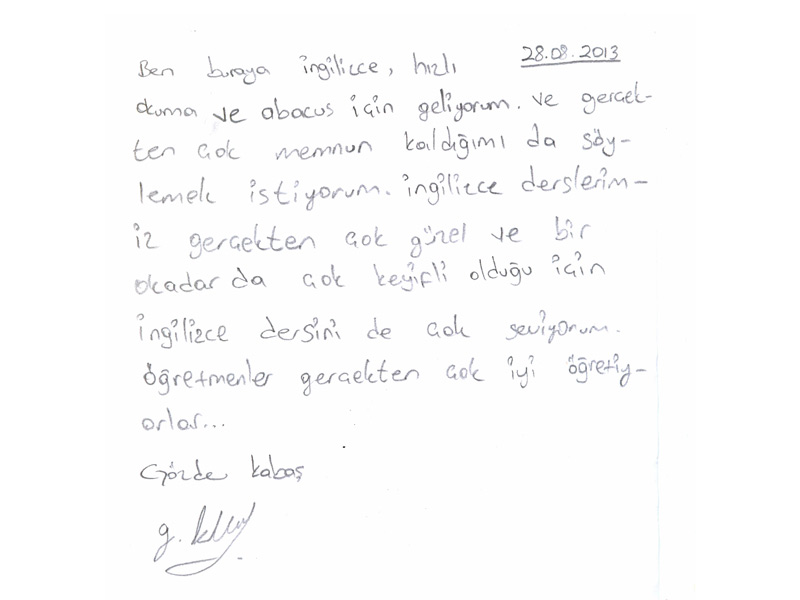 28.08.2013
Ben buraya ingilizce, hızlı
okuma ve abacus için geliyorum. ve gerçek-
ten çok memnun kaldığımı da söy-
lemek istiyorum. ingilizce derslerim-
iz gerçekten çok güzel ve bir
okadar da çok keyifli olduğu için
ingilizce dersini de çok seviyorum.
öğretmenler gerçekten çok iyi öğretiy-
orlar...
Gözde kabaş